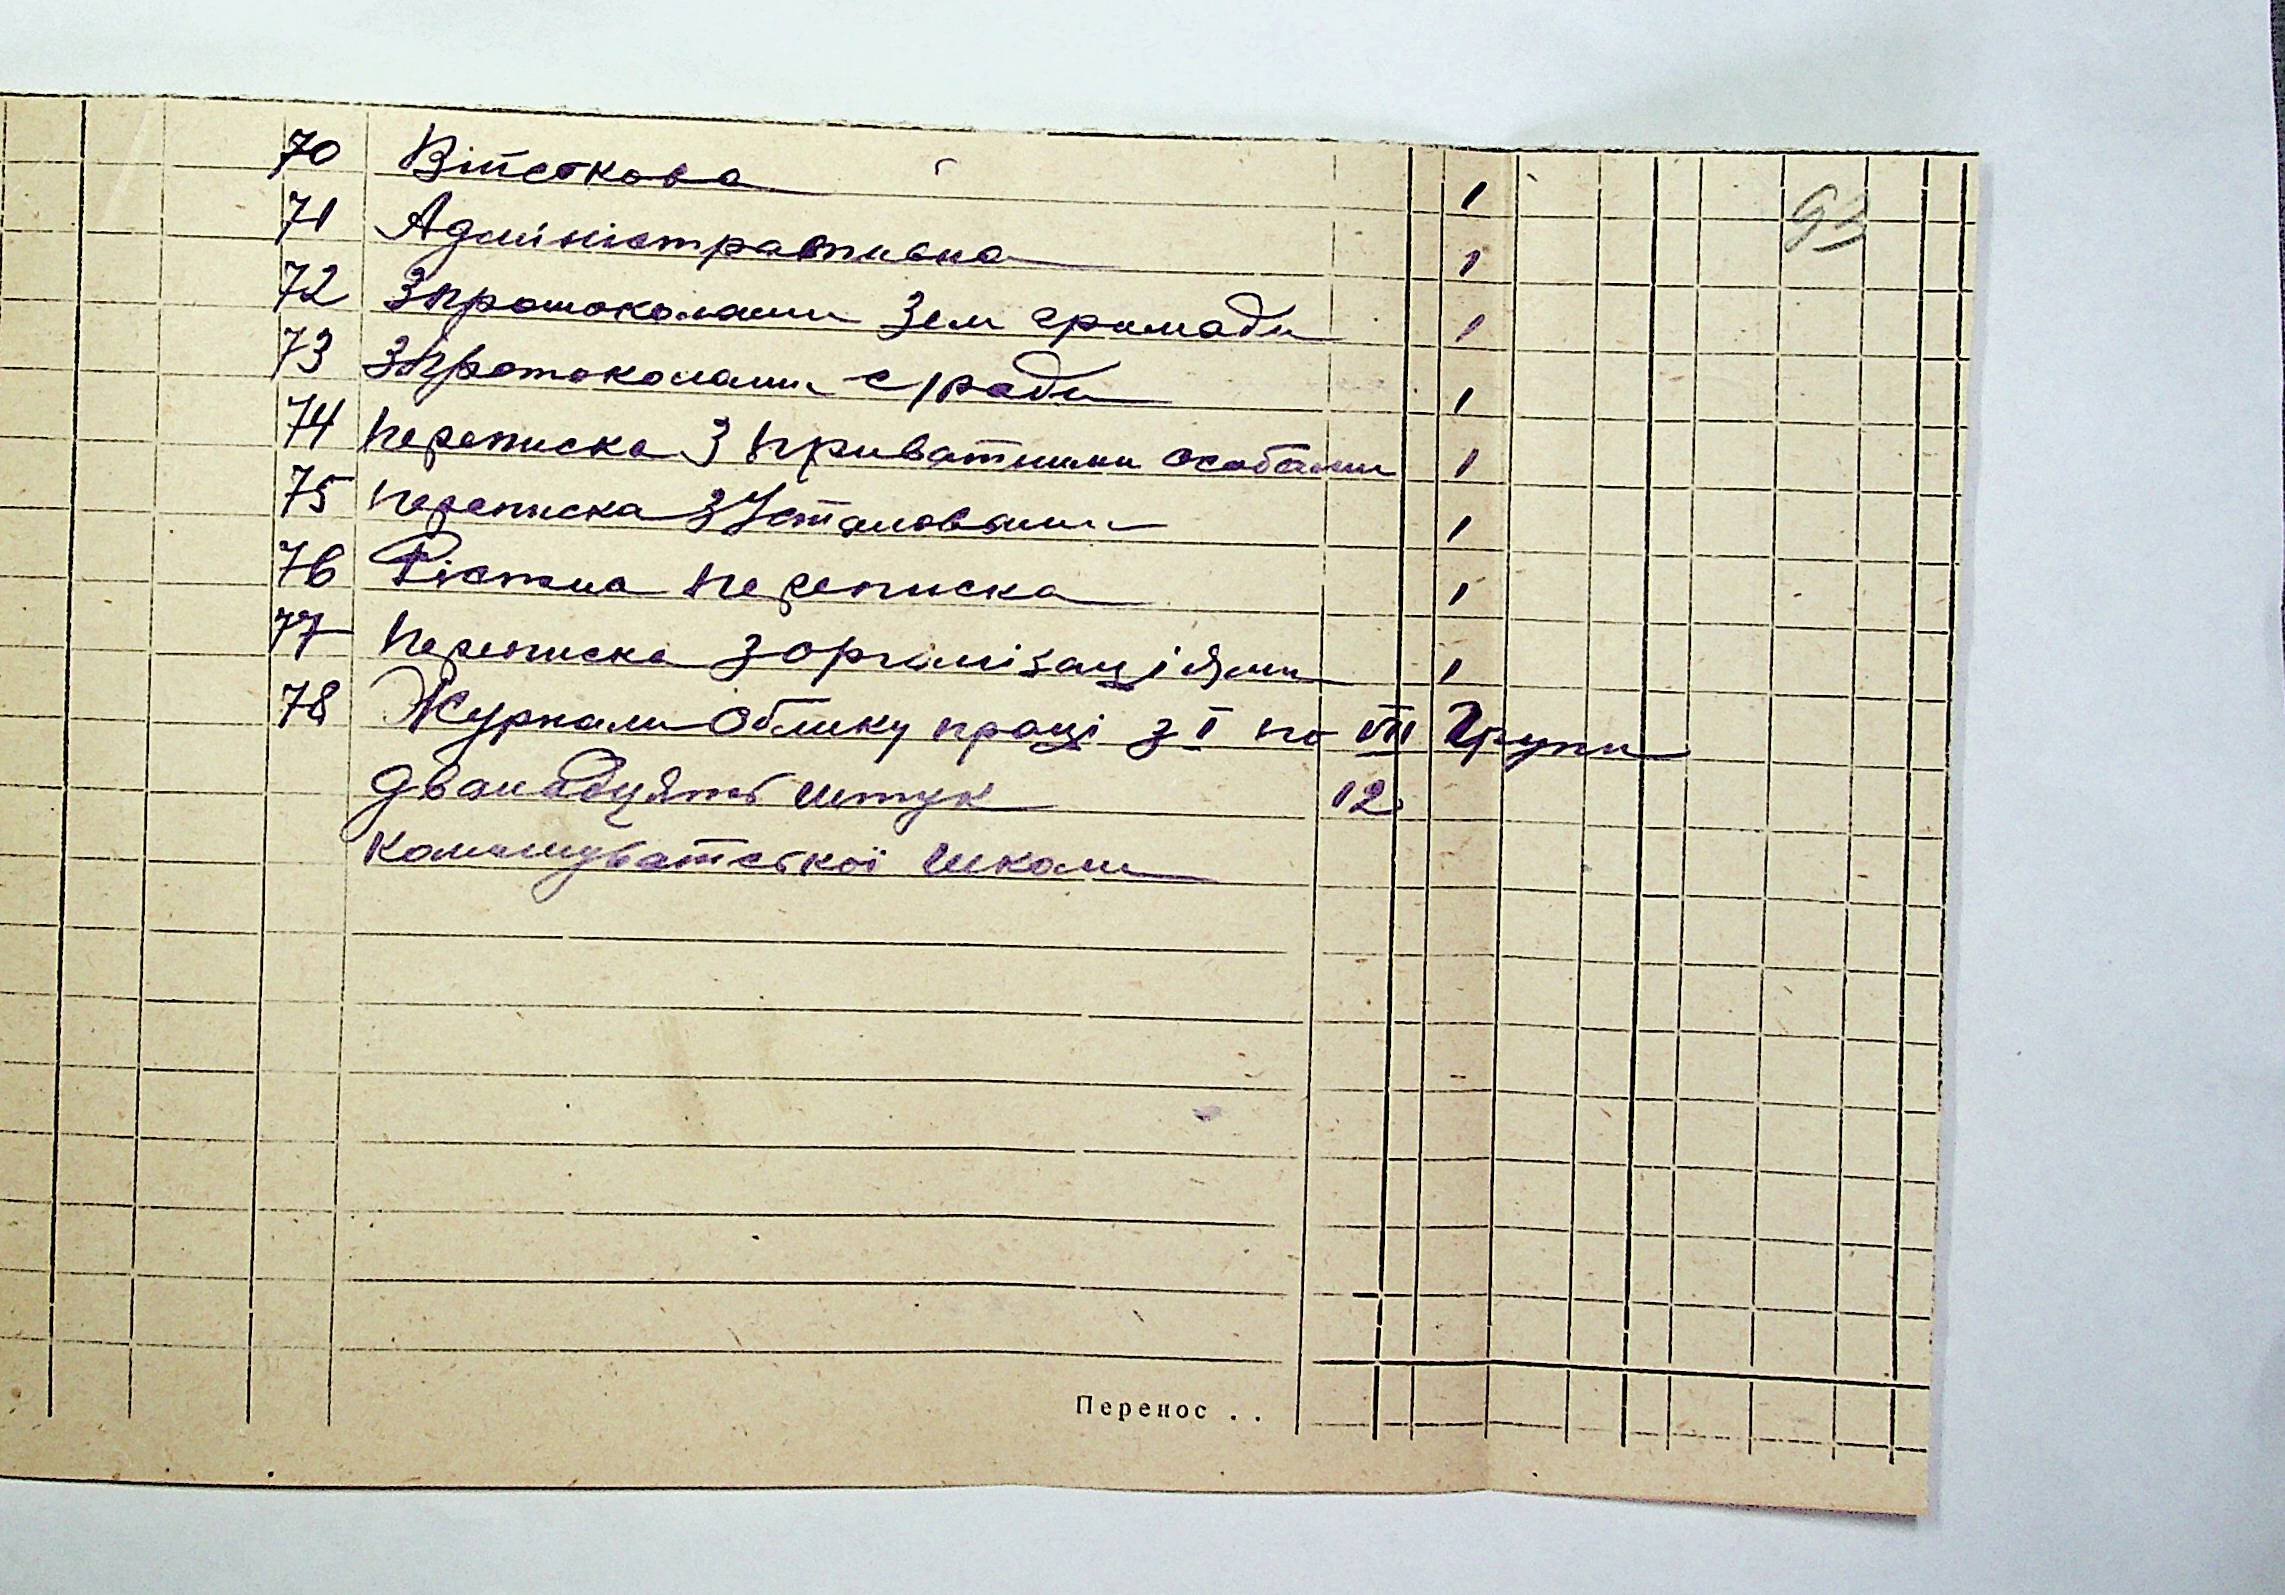 70 Військова 1
93
71 Адміністративна 1
72 З протоколами Зем громади 1
73 З протоколами с/ради 1
74 Переписка З приватними особами 1
75 Переписка З Установами 1
76 Ріжна переписка 1
77 Переписка з організаціями 1
78 Журнали Обліку праці з І по VII Групи
Дванадцять штук 12
Комишуватської школи
Перенос . .